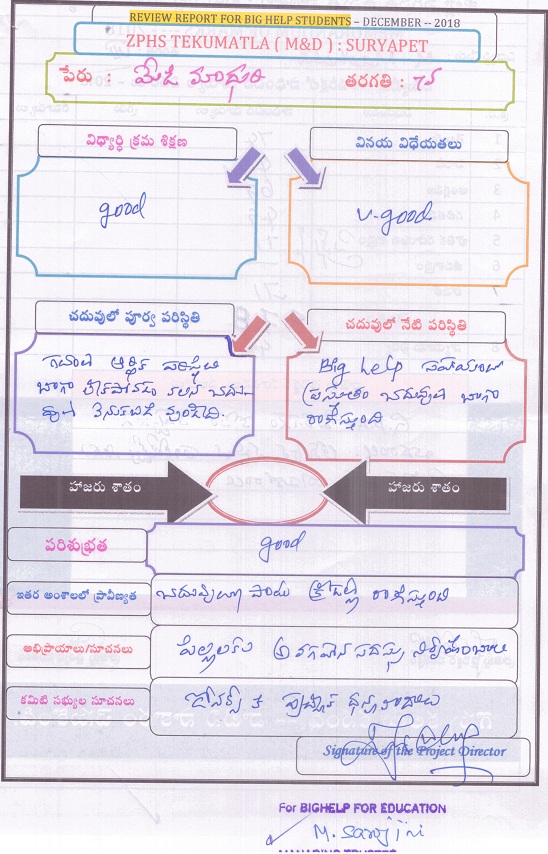 REVIEW REPORT FOR BIG HELP STUDENTS – DECEMBER -- 2018
ZPHS TEKUMATLA ( M&D ) : SURYAPET
పేరు : మేడి మాధురి తరగతి :
విధ్యార్థి క్రమ శిక్షణ
వినయ విధేయతలు
good
v-good
చదువులో పూర్వ పరిస్థితి
చదువులో నేటి పరిస్థితి
ఆర్థిక పరిస్థితి
బాగా లేకపోవడం వలన చదు-
వులో వెనుకబడి వుండేది.
Big help సహాయంతో
ప్రస్తుతం చదువులో బాగా
రాణిస్తుంది
హాజరు శాతం
హాజరు శాతం
పరిశుభ్రత
good
ఇతర అంశాలలో ప్రావీణ్యత
చదువుతో పాటు రాణిస్తుంది
అభిప్రాయాలు/సూచనలు
పిల్లలకు అవగాహన సదస్సు నిర్వహించాలి
కమిటి సభ్యుల సూచనలు
ధన్యవాదాలు
Signature of the Project Director
For BIGHELP FOR EDUCATION
M. Sarojini
MANAGING TRUSTEE